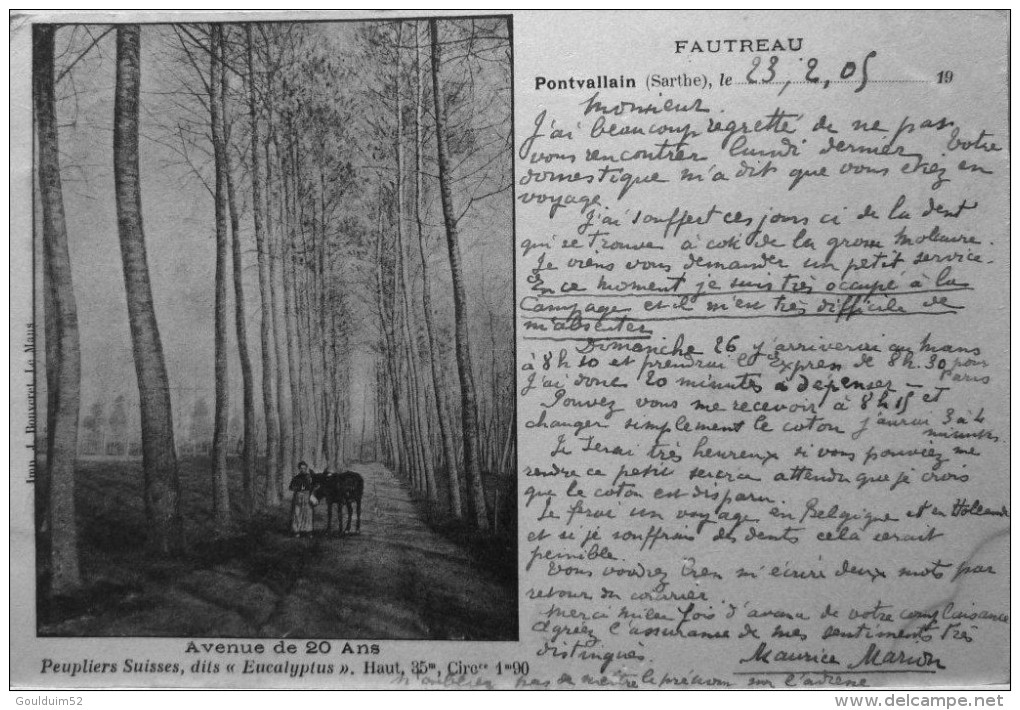 FAUTREAU
Pontvallain (Sarthe), le 23, 2, 05 19
Monsieur.
J'ai beaucoup regretté de ne pas
vous rencontrer lundi dernier Votre
domestique m'a dit que vous étiez en
voyage.
J'ai souffert ces jours ci de la dent
qui se trouve à coté de la grosse molaire.
Je viens vous demander un petit service.
En ce moment je suis très occupé à la
Campagne et il m'est très difficile de
m'absenter
Dimanche 26 j'arriverai au mans
à 8h 10 et prendrai l'express de 8h.30 pour
Paris
J'ai donc 20 minutes à depenser —
Pouvez vous me recevoir à 8h15 et
changer simplement le coton j'aurai 3 à 4
minutes.
Je serai très heureux si vous pouviez me
rendre ce petit service attendu que je crois
que le coton est disparu.
Je ferai un voyage en Belgique et en Hollande
et si je souffrais des dents cela serait
penible.
Vous voudrez bien m'écrire deux mots par
retour du courrier.
Merci mille fois d'avance de votre complaisance
Agréez l'assurance de mes sentiments très
distingués.
Maurice Marion
n'oubliez pas de mettre le prénom sur l'adresse
Imp. J. Bouveret Le Mans
Avenue de 20 Ans
Peupliers Suisses, dits « Eucalyptus ». Haut, 35m, Circce 1m90
© Goulduim52
delcampe.net